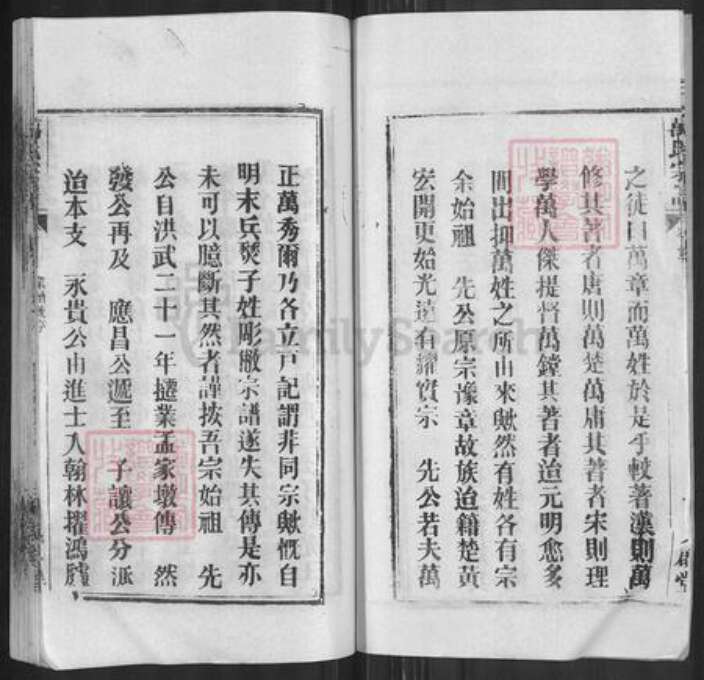 之徒曰萬章而萬姓於是乎較著漢則萬
修其著者唐則萬楚萬庸其著者宋則理
學萬人傑提督萬鏜其著者迨元明愈多
間出抑萬姓之所由來歟然有姓各有宗
余始祖 先公原宗豫章故族迨籍楚黄
宏開更始光遠有耀實宗 先公若夫萬
正萬秀爾乃各立戸記謂非同宗歟慨自
明末兵燹子姓彫敝宗譜遂失其傳是亦
未可以臆斷其然者謹按吾宗始祖 先
公自洪武二十一年搓業孟家墩傳 然
發公再及 應昌公遞至 子讓公分派
迨本支 永貴公由進士入翰林擢鴻臚
FamilySearch